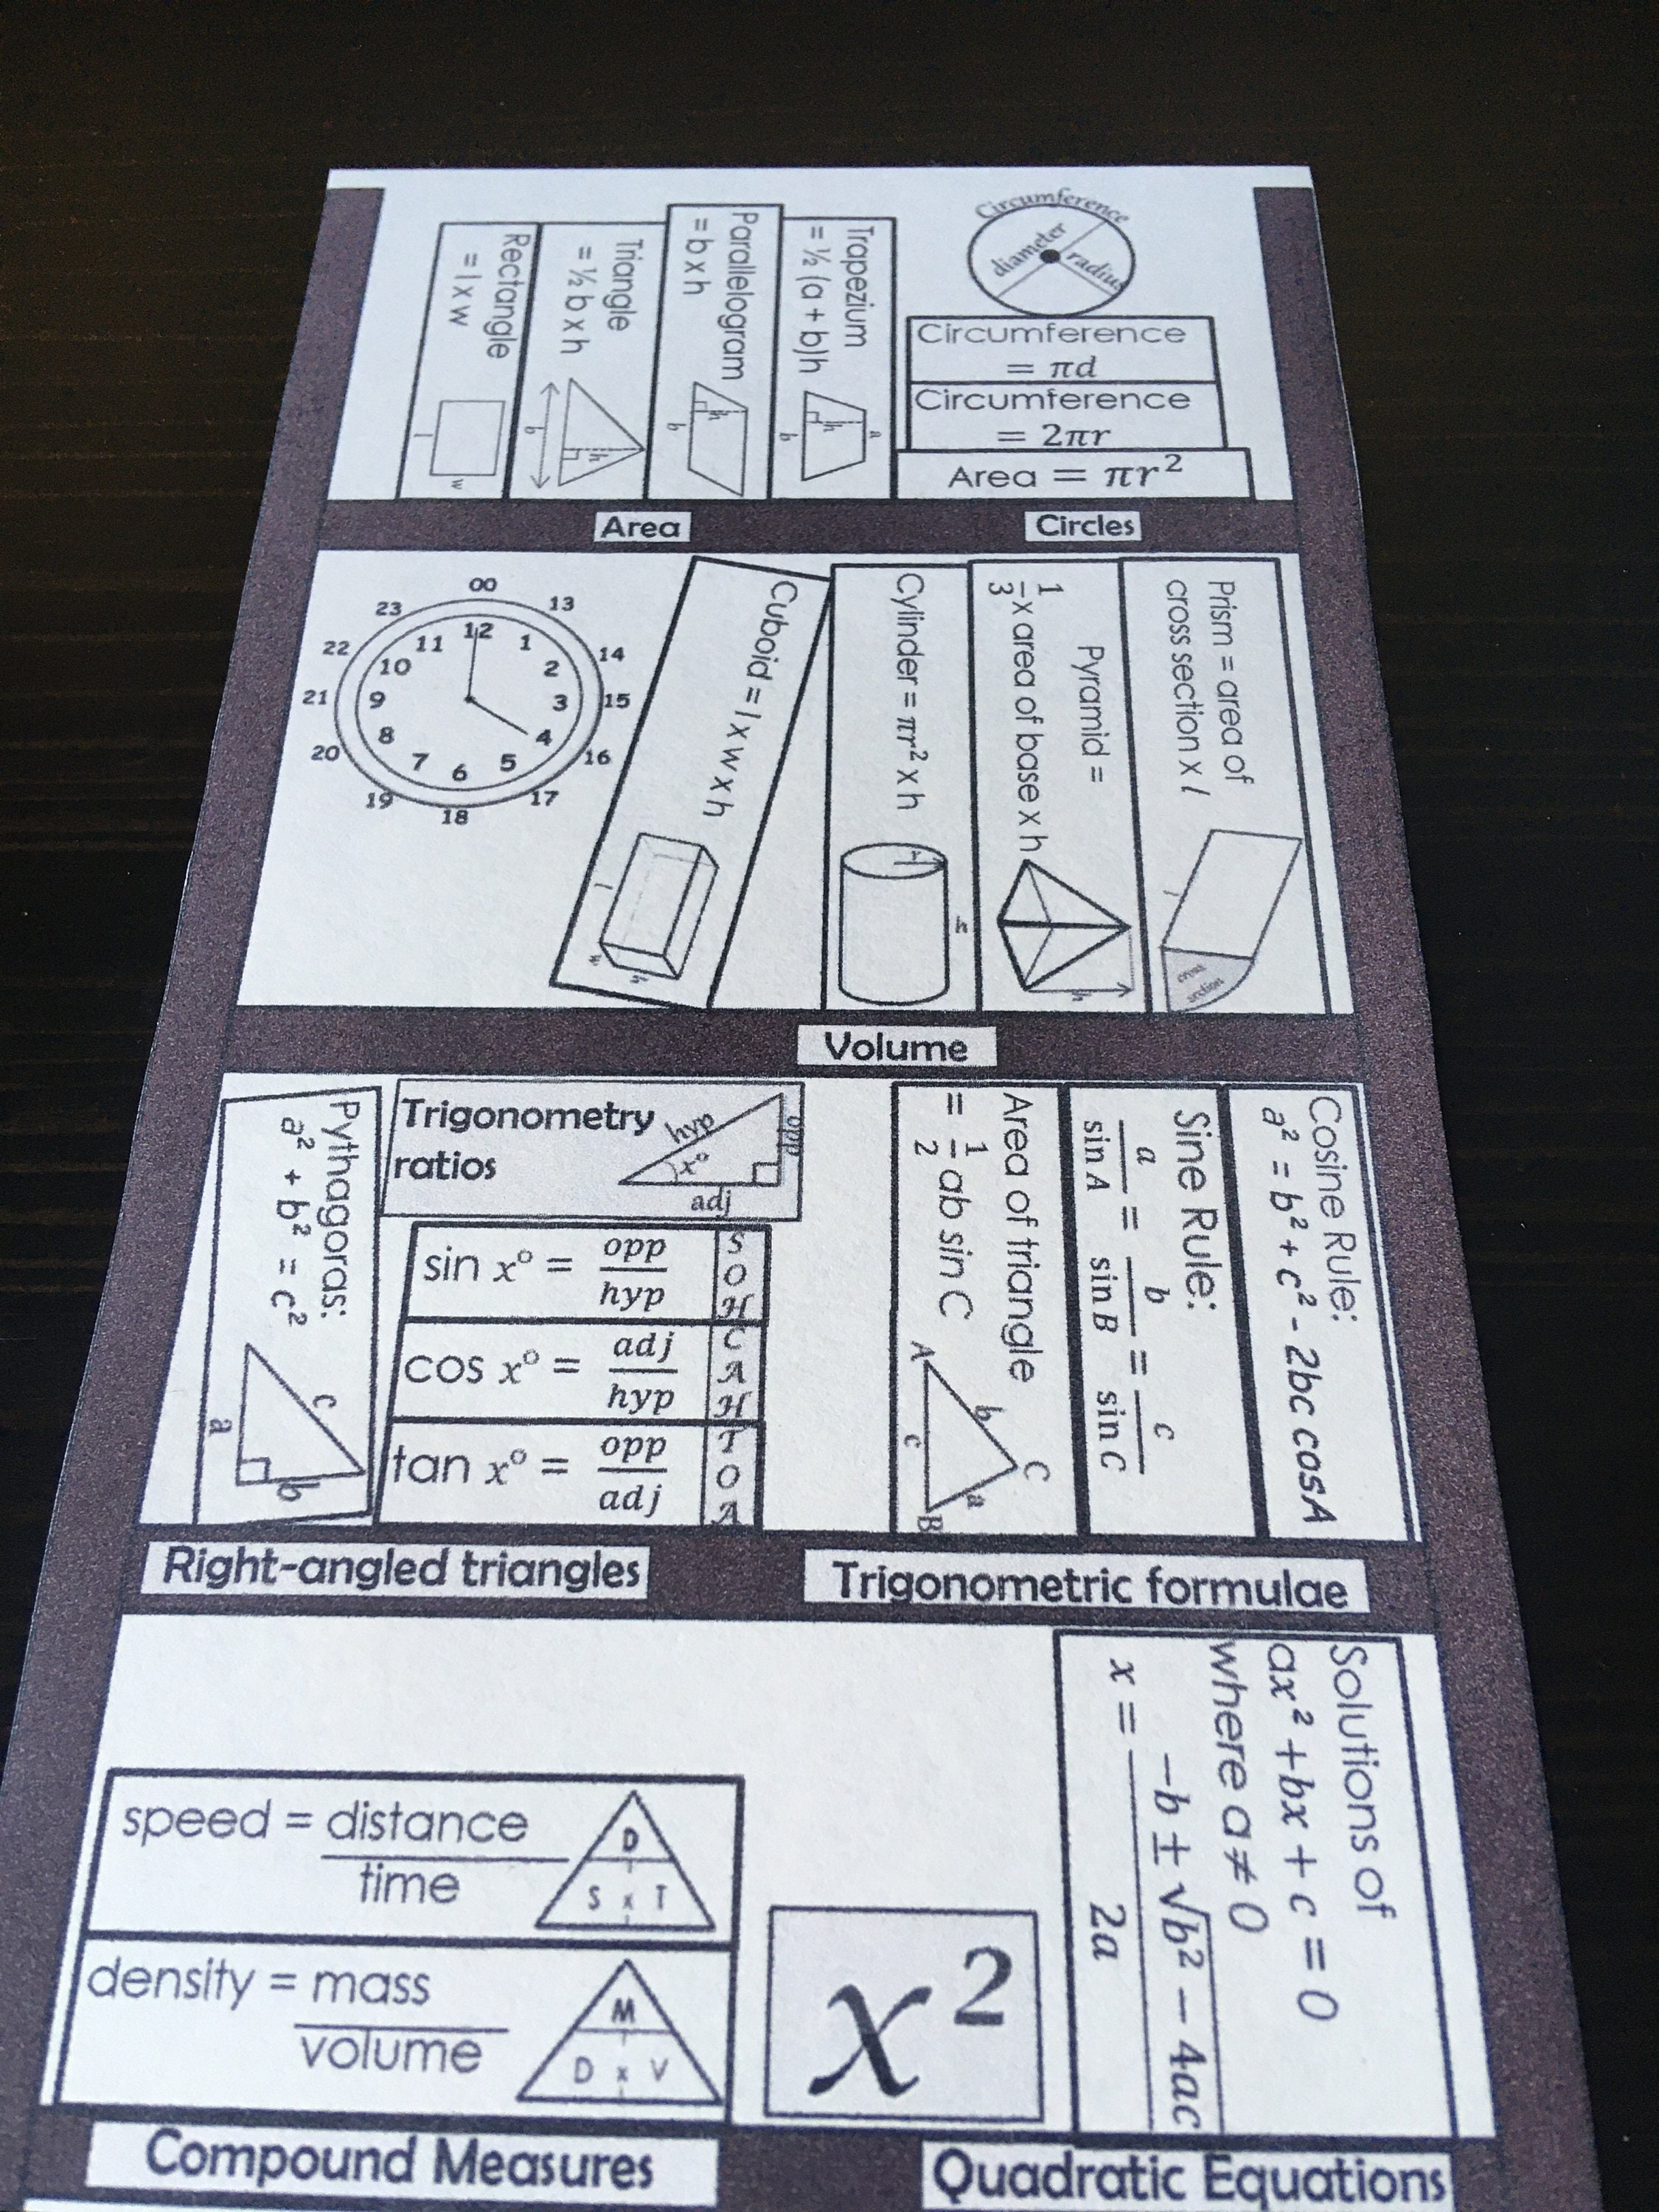 Rectangle
= l x w
l
w
Triangle
= ½ b x h
b
h
Parallelogram
= b x h
h
b
Trapezium
= ½ (a + b)h
a
h
b
Circumference
diameter
radius
Circumference
= πd
Circumference
= 2πr
Area = πr²
Area
Circles
00
13
14
15
16
17
18
19
20
21
22
23
12
1
2
3
4
5
6
7
8
9
10
11
Cuboid = l x w x h
l
w
h
Cylinder = πr² x h
r
h
Pyramid =
1/3 x area of base x h
h
Prism = area of
cross section x l
l
cross
section
Volume
Pythagoras:
a² + b² = c²
c
a
b
Trigonometry
ratios
hyp
opp
x°
adj
sin x° = opp/hyp
S
O
H
cos x° = adj/hyp
C
A
H
tan x° = opp/adj
T
O
A
Area of triangle
= 1/2 ab sin C
A
b
C
c
a
B
Sine Rule:
a/sin A = b/sin B = c/sin C
Cosine Rule:
a² = b² + c² - 2bc cosA
Right-angled triangles
Trigonometric formulae
speed = distance
time
D
S x T
density = mass
volume
M
D x V
x²
Solutions of
ax² + bx + c = 0
where a ≠ 0
x = −b ± √b² − 4ac
2a
Compound Measures
Quadratic Equations